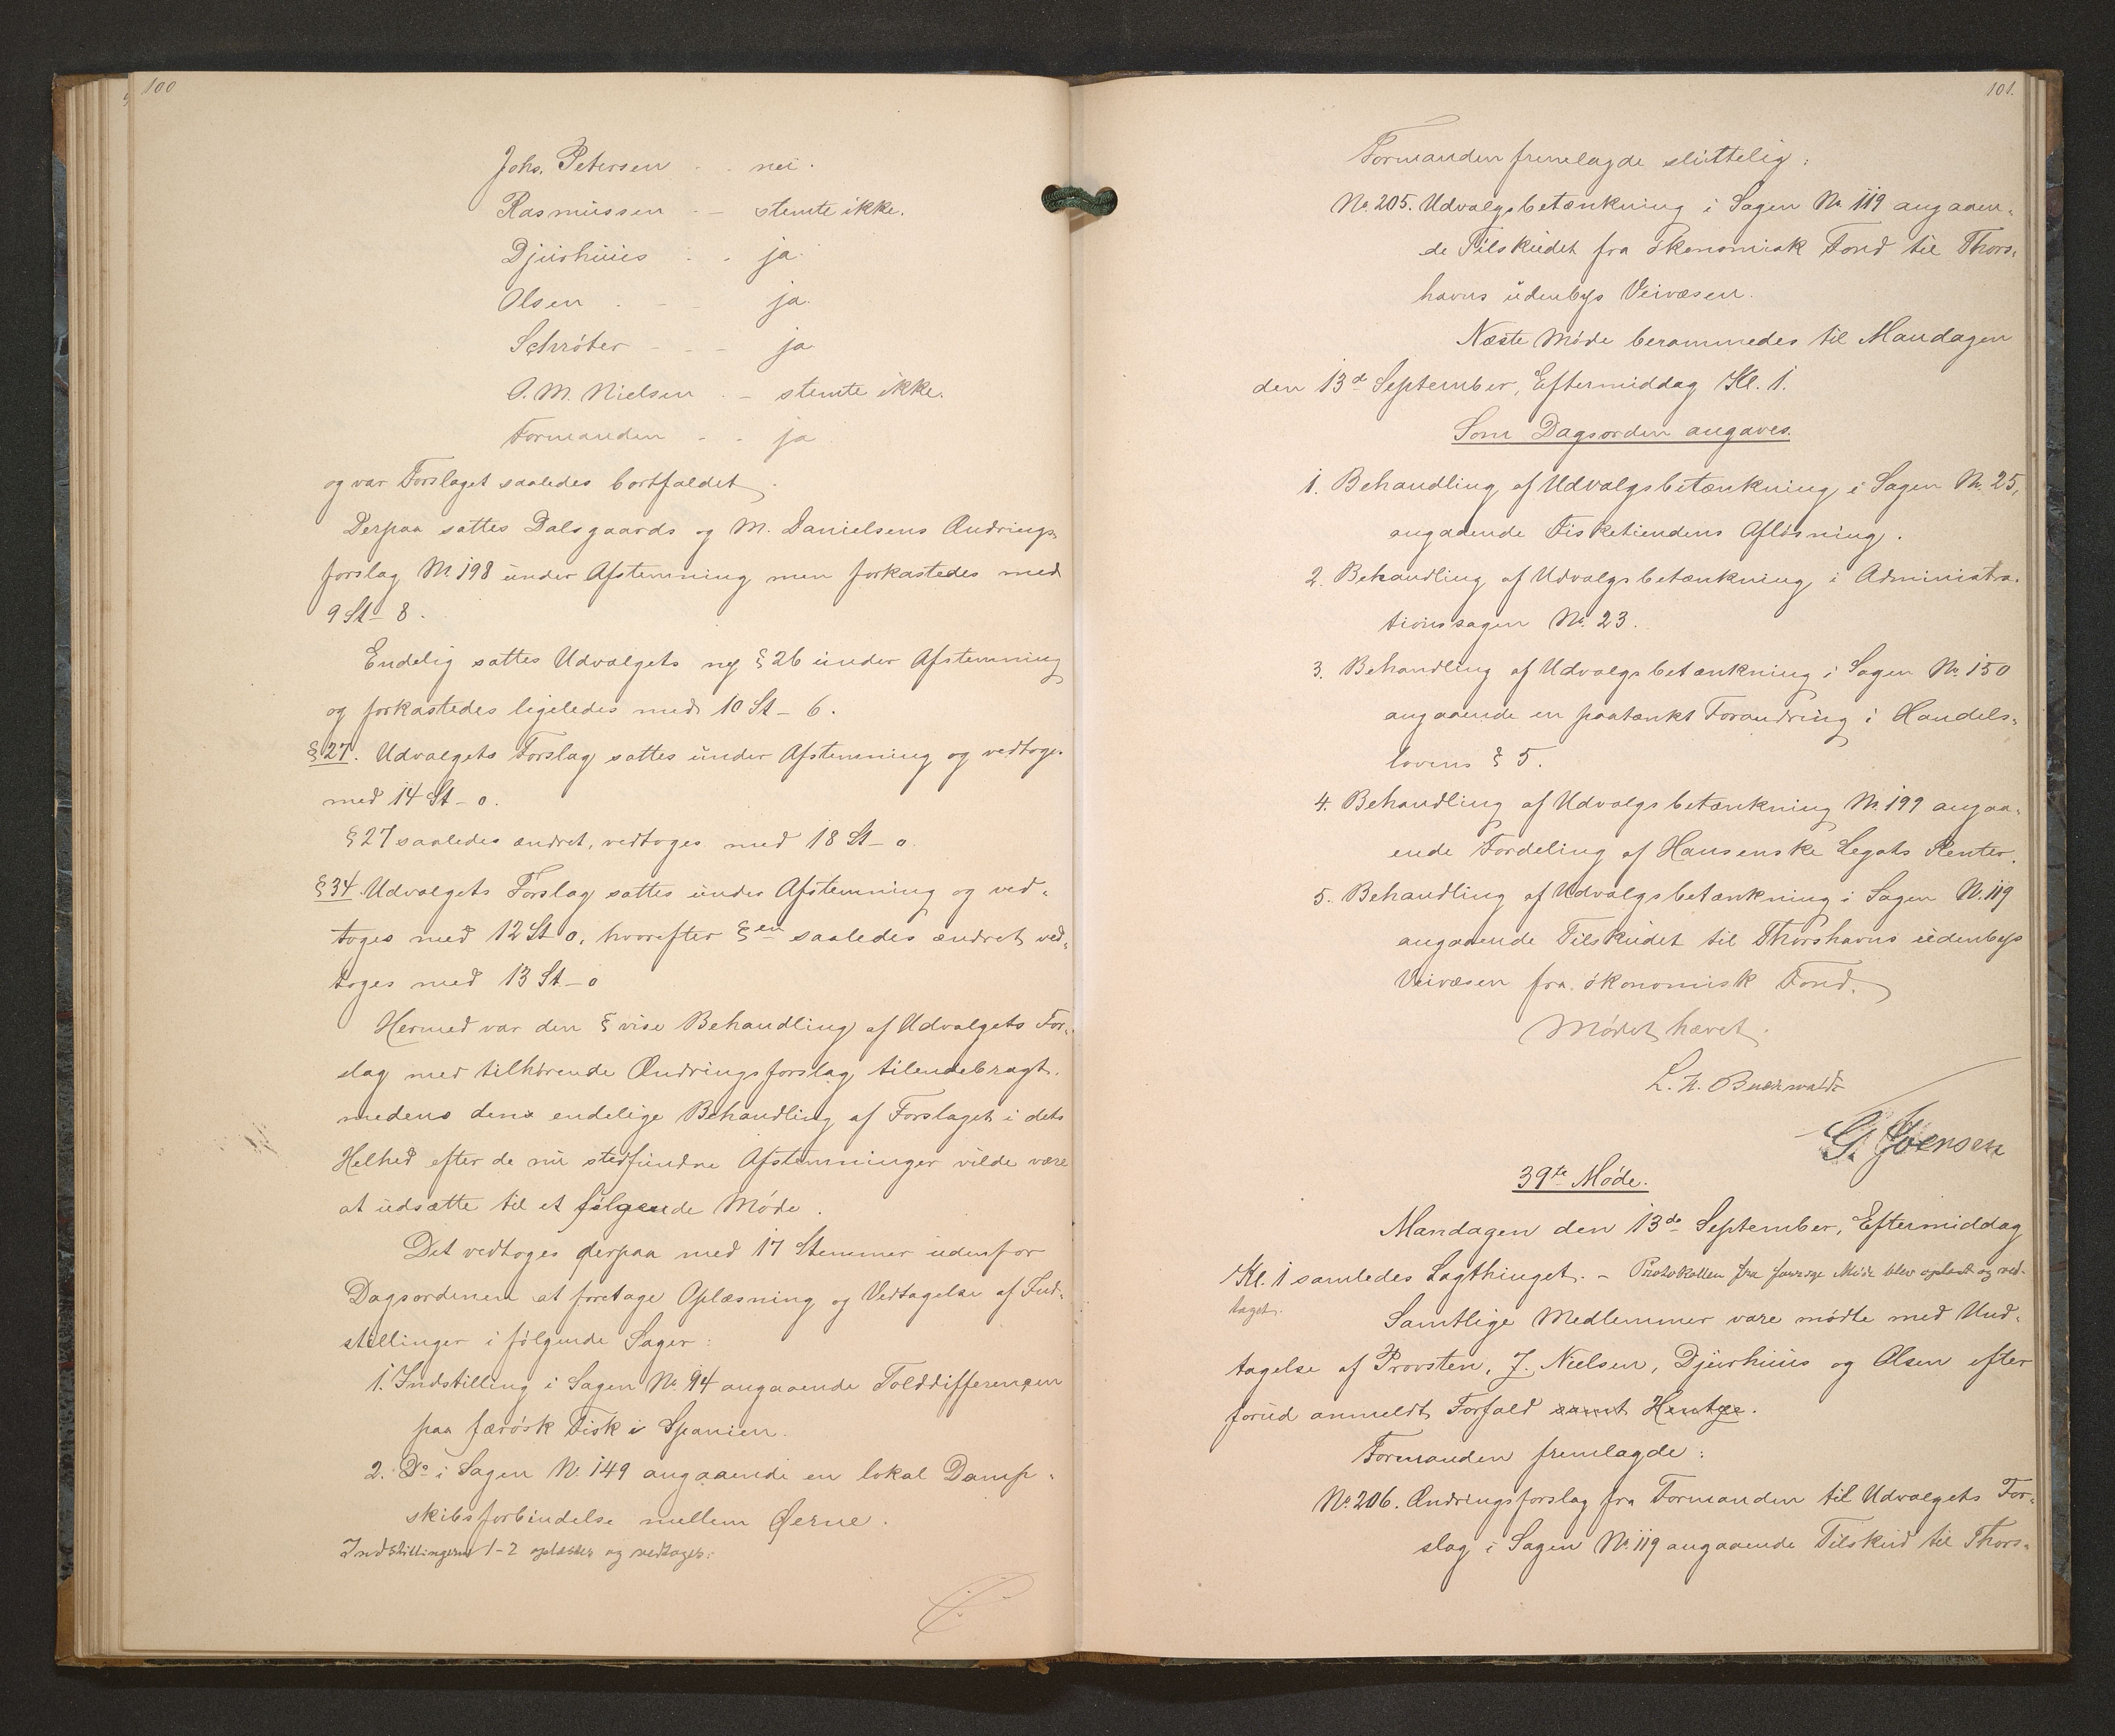 100
Johs. Petersen - - nei.
Rasmussen - - stemte ikke.
Djurhuus - - ja.
Olsen - - - ja.
Schrøter - - - ja
O. M. Nielsen - - stemte ikke.
Formanden - - ja
og var Forslaget saaledes bortfaldet.
Derpaa sattes Dalsgaards og M. Danielsens Ændrings-
forslag No. 198 under Afstemning men forkastedes med
9 St - 8.
Endelig sattes Udvalgets ny § 26 under Afstemning
og forkastedes ligeledes med 10 St - 6.
§ 27. Udvalgets Forslag sattes under Afstemning og vedtoges
med 14 St - 0.
§ 27 saaledes ændret, vedtoges med 18 St - 0.
§ 34. Udvalgets Forslag sattes under Afstemning og ved-
toges med 12 St 0, hvorefter §en saaledes ændret ved-
toges med 13 St - 0
Hermed var den § vise Behandling af Udvalgets For-
slag med tilhørende Ændringsforslag tilendebragt,
medens den endelige Behandling af Forslaget i dets
Helhed efter de nu stedfundne Afstemninger vilde være
at udsætte til et følgende Møde.
Det vedtoges derpaa med 17 Stemmer udenfor
Dagsordenen at foretage Oplæsning og Vedtagelse af Ind-
stillinger i følgende Sager:
1. Indstilling i Sagen No. 94 angaaende Tolddifferencen
paa færøsk Fisk i Spanien.
2. Do i Sagen No. 149 angaaende en lokal Damp-
skibsforbindelse mellem Øerne.
Indstillingerne 1-2 oplæstes og vedtoges.
101.
Formanden fremlagde sluttelig:
No. 205. Udvalgsbetænkning i Sagen No. 119 angaaen-
de Tilskudet fra økonomisk Fond til Thors-
havns udenbys Veivæsen.
Næste Møde berammedes til Mandagen
den 13de September, Eftermiddag Kl. 1.
Som Dagsorden angaves.
1. Behandling af Udvalgsbetænkning i Sagen No. 25,
angaaende Fisketiendens Afløsning.
2. Behandling af Udvalgsbetænkning i Administra-
tionssagen No. 23.
3. Behandling af Udvalgsbetænkning i Sagen No. 150
angaaende en paatænkt Forandring i Handels-
lovens § 5.
4. Behandling af Udvalgsbetænkning No. 199 angaa-
ende Fordeling af Hansenske Legats Renter.
5. Behandling af Udvalgsbetænkning i Sagen No. 119
angaaende Tilskudet til Thorshavns udenbys
Veivæsen fra økonomisk Fond.
Mødet hævet.
39te Møde.
Mandagen den 13de September, Eftermiddag
Kl. 1 samledes Lagthinget. - Protokollen fra forrige Møde blev oplæst og ved-
taget.
Samtlige Medlemmer vare mødte med Und-
tagelse af Provsten, J. Nielsen, Djurhuus og Olsen efter
forud anmeldt Forfald samt Hentze.
Formanden fremlagde:
No. 206. Ændringsforslag fra Formanden til Udvalgets For-
slag i Sagen No. 119 angaaende Tilskud til Thors-